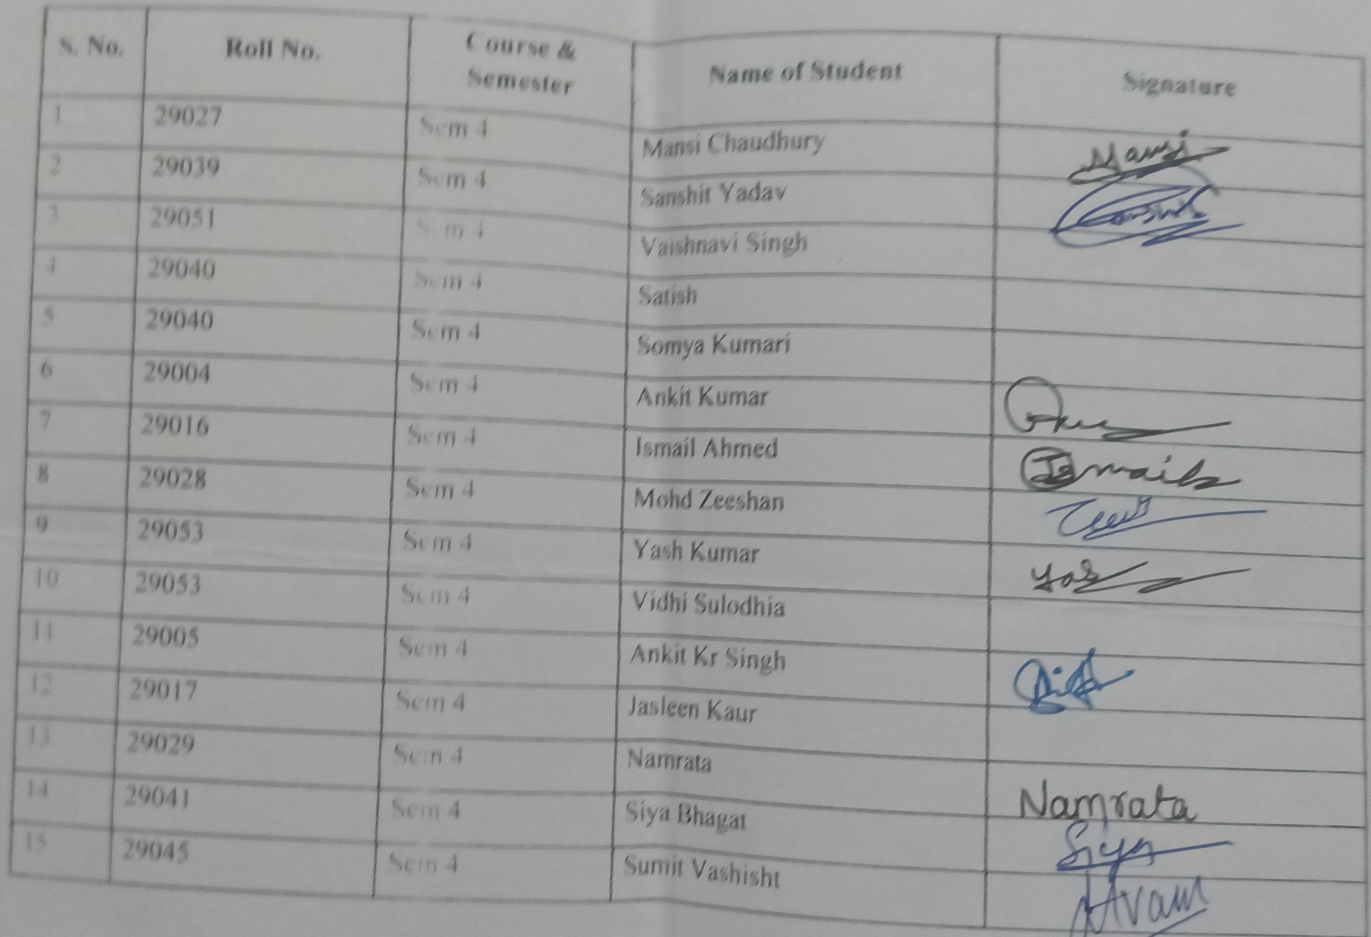 S. No. Roll No. Course & Semester Name of Student Signature
1 29027 Sem 4 Mansi Chaudhury Mansi
2 29039 Sem 4 Sanshit Yadav
3 29051 Sem 4 Vaishnavi Singh
4 29040 Sem 4 Satish
5 29040 Sem 4 Somya Kumari
6 29004 Sem 4 Ankit Kumar
7 29016 Sem 4 Ismail Ahmed Ismail
8 29028 Sem 4 Mohd Zeeshan
9 29053 Sem 4 Yash Kumar
10 29053 Sem 4 Vidhi Sulodhia
11 29005 Sem 4 Ankit Kr Singh
12 29017 Sem 4 Jasleen Kaur
13 29029 Sem 4 Namrata Namrata
14 29041 Sem 4 Siya Bhagat Siya
15 29045 Sem 4 Sumit Vashisht